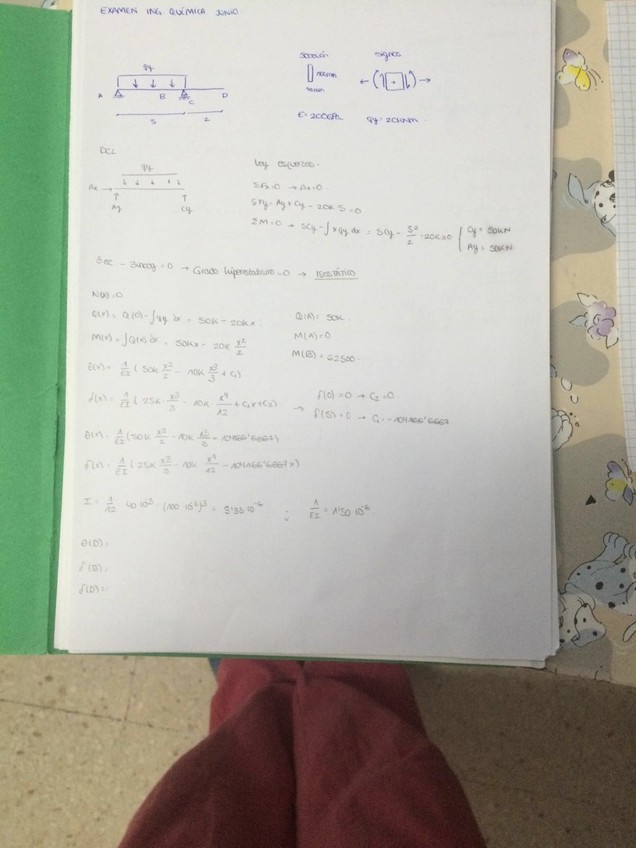 EXAMEN ING. QUÍMICA JUNIO
qy
A B C D
5 2
sección
100mm
signos
E=200GPa qy=20kN/m
DCL
qy
Ax
Ay Cy
Ley esfuerzos.
ΣFx=0 → Ax=0
ΣFy = Ay + Cy - 20k 5 = 0
ΣM=0 → 5Cy - ∫x qy dx = 5Cy - 5²/2 · 20k=0 { Cy = 50kN
Ay = 50kN
→ Grado hiperestatismo = 0 → ISOSTÁTICO
N(x)=0
Q(x) = Q(0) - ∫qy dx = 50k - 20kx
Q(A) = 50k
M(x) = ∫Q(x) dx = 50kx - 20k x²/2
M(A) = 0
M(B) = 62500
θ(x) = 1/EI ( 50k x²/2 - 10k x³/3 + C₁)
δ(x) = 1/EI ( 25k · x³/3 - 10k · x⁴/12 + C₁x + C₂) → δ(0)=0 → C₂=0
δ(5)=0 → C₁=-104166'6667
θ(x) = 1/EI (50k x²/2 - 10k x³/3 - 104166'6667)
δ(x) = 1/EI ( 25k x³/3 - 10k x⁴/12 - 104166'6667x)
I = 1/12 · 40·10⁻³ · (100·10⁻³)³ = 3'33·10⁻⁶ ; 1/EI = 1'50·10⁻⁶
θ(D) =
δ(B) =
δ(D) =